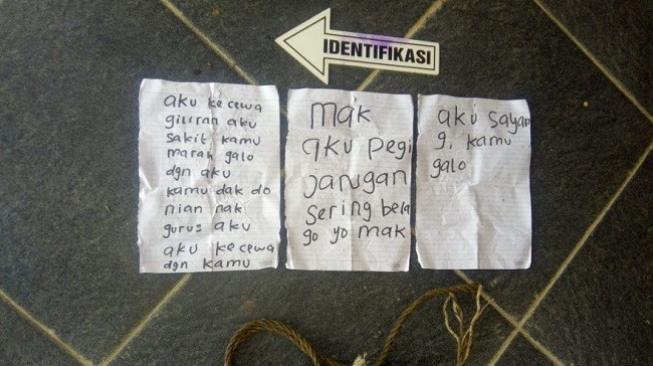 IDENTIFIKASI
aku kecewa
giliran aku
sakit kamu
marah galo
dgn aku
kamu dak do
nian nak
gurus aku
aku kecewa
dgn kamu
mak
aku pegi
jangan
sering bela
go yo mak
aku sayan
g. kamu
galo